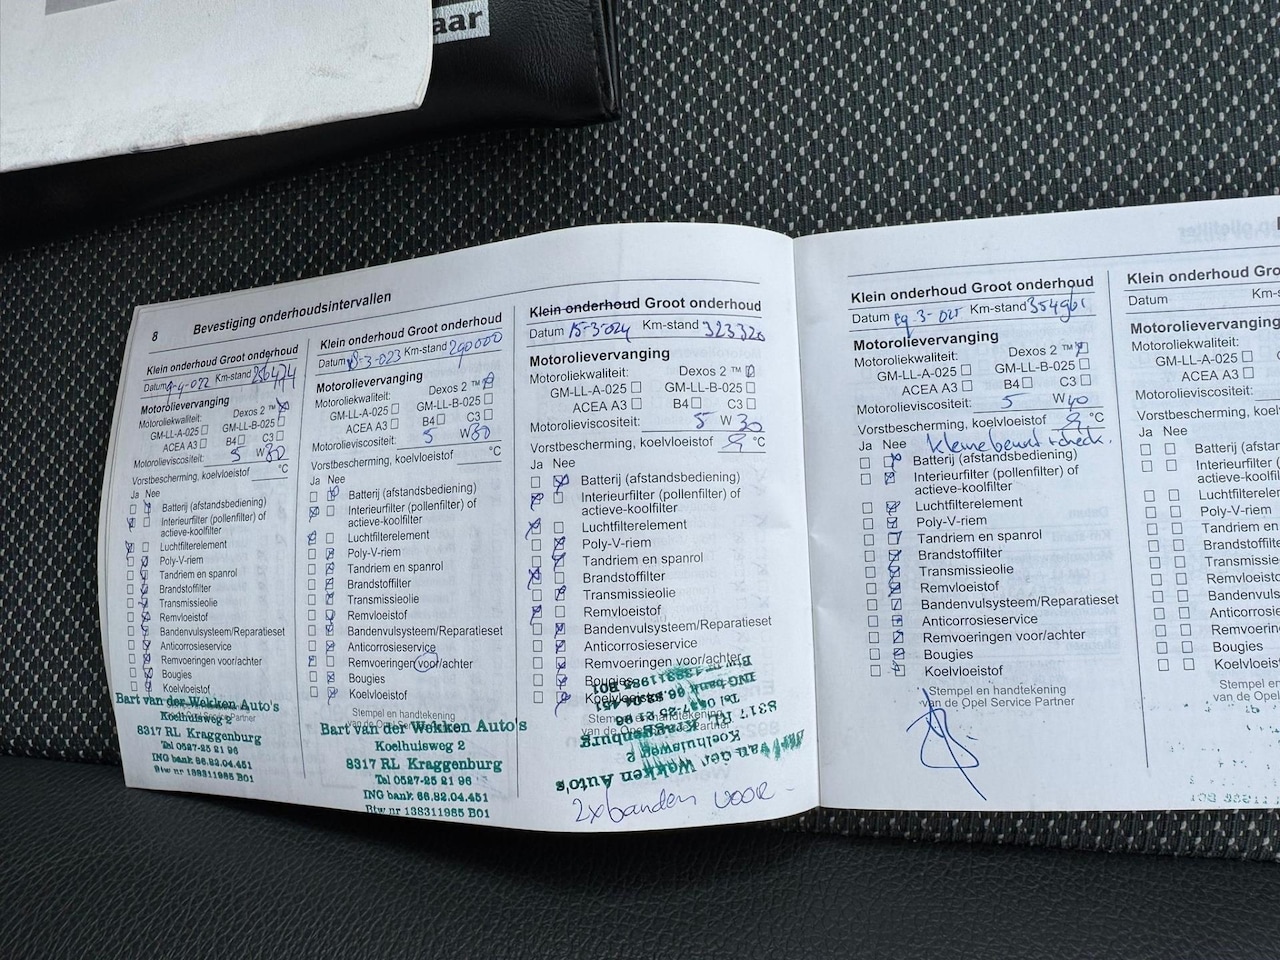 aar
8 Bevestiging onderhoudsintervallen
Klein onderhoud Groot onderhoud
Datum Km-stand
Motorolievervanging
Motoroliekwaliteit: Dexos 2 ™
GM-LL-A-025 GM-LL-B-025
ACEA A3 B4 C3
Motorolieviscositeit: 5 W 30
Vorstbescherming, koelvloeistof °C
Ja Nee
Batterij (afstandsbediening)
Interieurfilter (pollenfilter) of
actieve-koolfilter
Luchtfilterelement
Poly-V-riem
Tandriem en spanrol
Brandstoffilter
Transmissieolie
Remvloeistof
Bandenvulsysteem/Reparatieset
Anticorrosieservice
Remvoeringen voor/achter
Bougies
Koelvloeistof
Bart van der Wekken Auto's
Koelhulsweg 2
8317 RL Kraggenburg
Tel 0527-25 21 96
ING bank 66.82.04.451
Btw nr 138311985 B01
Klein onderhoud Groot onderhoud
Datum 8-3-023 Km-stand 290000
Motorolievervanging
Motoroliekwaliteit: Dexos 2 ™
GM-LL-A-025 GM-LL-B-025
ACEA A3 B4 C3
Motorolieviscositeit: 5 W 30
Vorstbescherming, koelvloeistof °C
Ja Nee
Batterij (afstandsbediening)
Interieurfilter (pollenfilter) of
actieve-koolfilter
Luchtfilterelement
Poly-V-riem
Tandriem en spanrol
Brandstoffilter
Transmissieolie
Remvloeistof
Bandenvulsysteem/Reparatieset
Anticorrosieservice
Remvoeringen voor/achter
Bougies
Koelvloeistof
Stempel en handtekening
van de Opel Service Partner
Bart van der Wekken Auto's
Koelhulsweg 2
8317 RL Kraggenburg
Tel 0527-25 21 96
ING bank 66.82.04.451
Btw nr 138311985 B01
Klein onderhoud Groot onderhoud
Datum 15-3-024 Km-stand 323326
Motorolievervanging
Motoroliekwaliteit: Dexos 2 ™
GM-LL-A-025 GM-LL-B-025
ACEA A3 B4 C3
Motorolieviscositeit: 5 W 30
Vorstbescherming, koelvloeistof °C
Ja Nee
Batterij (afstandsbediening)
Interieurfilter (pollenfilter) of
actieve-koolfilter
Luchtfilterelement
Poly-V-riem
Tandriem en spanrol
Brandstoffilter
Transmissieolie
Remvloeistof
Bandenvulsysteem/Reparatieset
Anticorrosieservice
Remvoeringen voor/achter
Bougies
Koelvloeistof
Stempel en handtekening
van de Opel Service Partner
Bart van der Wekken Auto's
Koelhulsweg 2
8317 RL Kraggenburg
Tel 0527-25 21 96
ING bank 66.82.04.451
Btw nr 138311985 B01
2x banden voor
Klein onderhoud Groot onderhoud
Datum Km-stand 354961
Motorolievervanging
Motoroliekwaliteit: Dexos 2 ™
GM-LL-A-025 GM-LL-B-025
ACEA A3 B4 C3
Motorolieviscositeit: 5 W 40
Vorstbescherming, koelvloeistof °C
Ja Nee kleine beurt + check.
Batterij (afstandsbediening)
Interieurfilter (pollenfilter) of
actieve-koolfilter
Luchtfilterelement
Poly-V-riem
Tandriem en spanrol
Brandstoffilter
Transmissieolie
Remvloeistof
Bandenvulsysteem/Reparatieset
Anticorrosieservice
Remvoeringen voor/achter
Bougies
Koelvloeistof
Stempel en handtekening
van de Opel Service Partner
Klein onderhoud Gro
Datum Km-s
Motorolievervanging
Motoroliekwaliteit:
GM-LL-A-025
ACEA A3
Motorolieviscositeit:
Vorstbescherming, koelvloe
Ja Nee
Batterij (afsta
Interieurfilter
actieve-koolf
Luchtfilterele
Poly-V-riem
Tandriem en
Brandstoffilte
Transmissie
Remvloeisto
Bandenvuls
Anticorrosie
Remvoering
Bougies
Koelvloeisto
Stempel en
van de Opel S